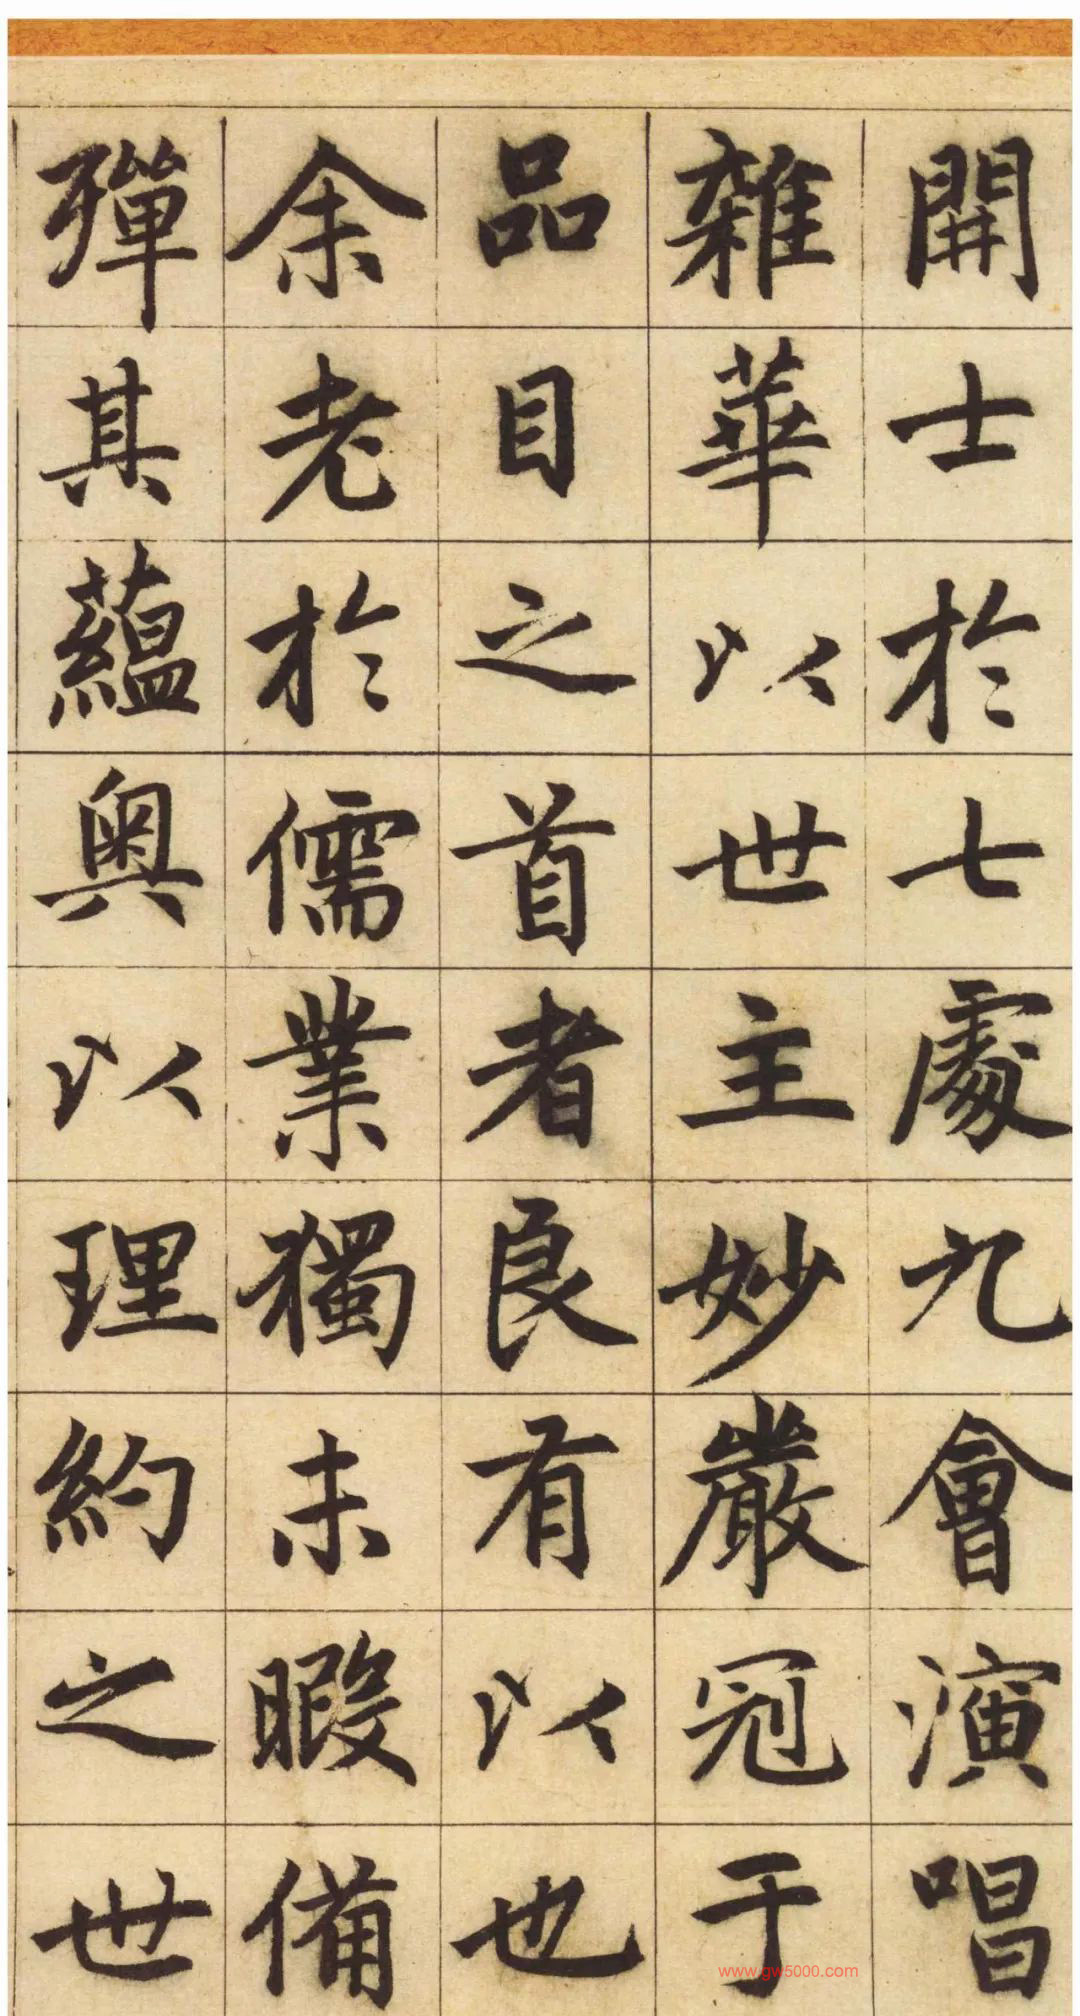 開士於七處九會演唱
雜華以世主妙嚴冠于
品目之首者良有以也
余老於儒業獨未暇備
殫其蘊奧以理約之世
www.gw5000.com